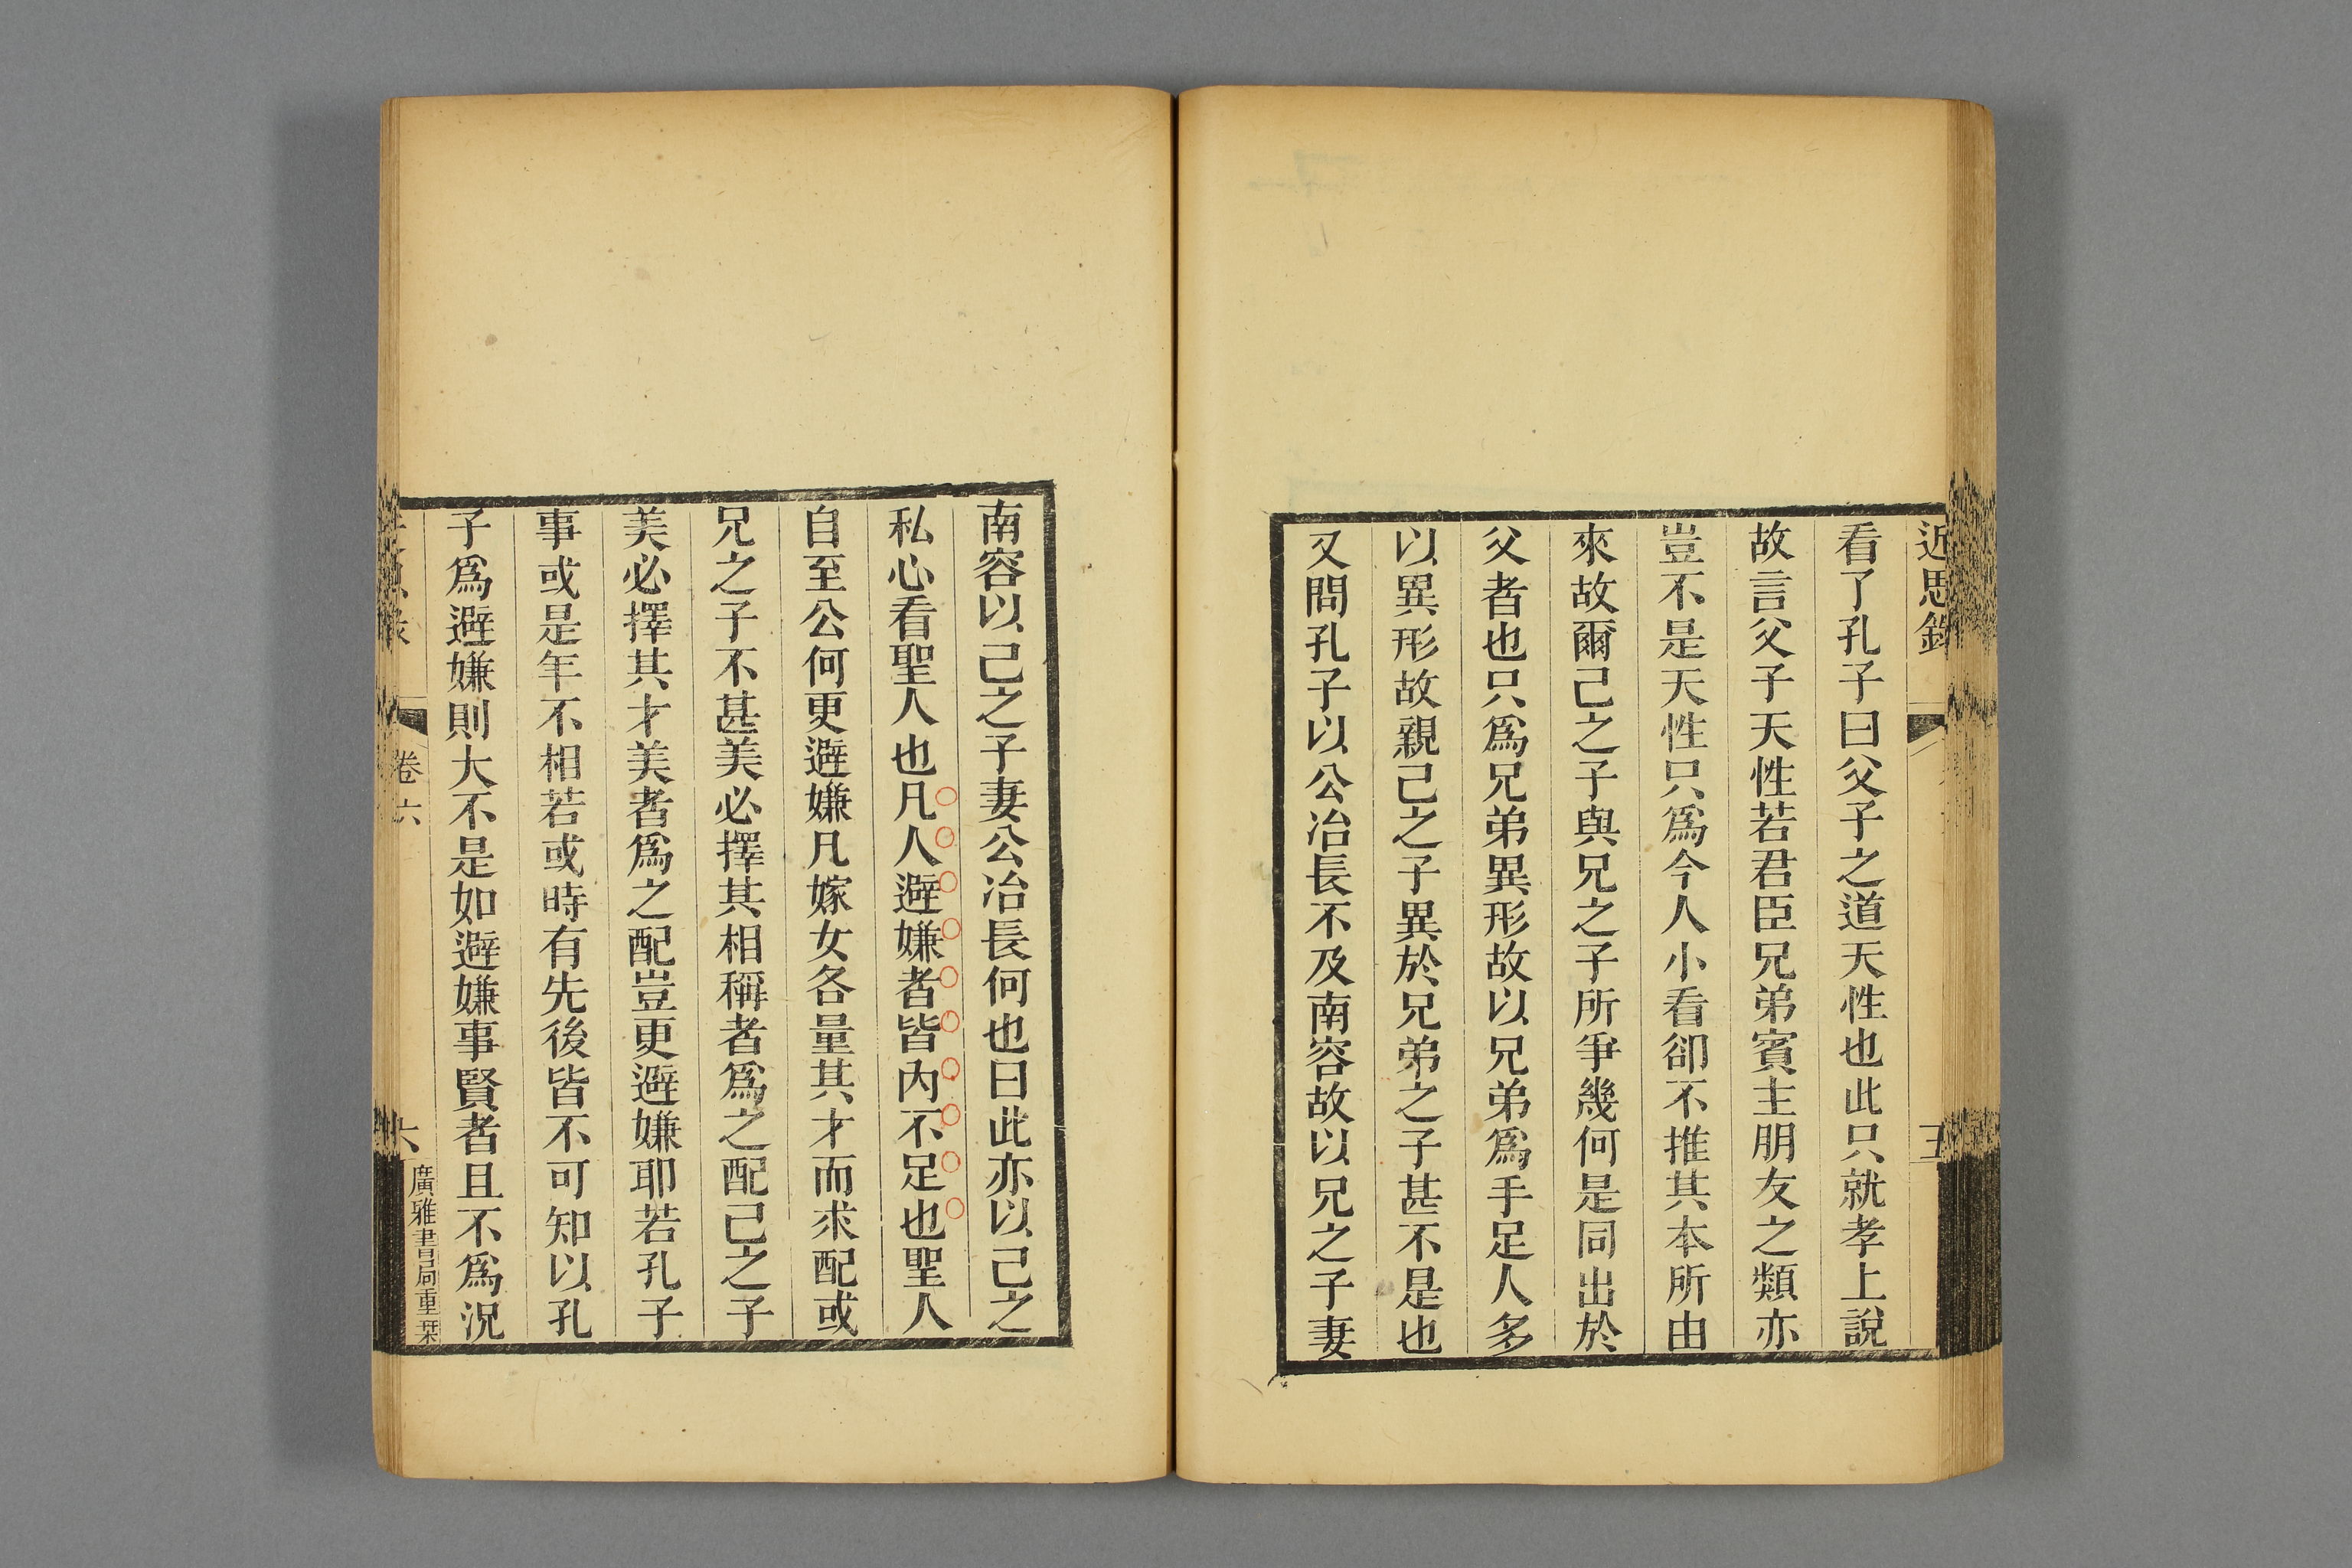 近思錄
五
看了孔子曰父子之道天性也此只就孝上說
故言父子天性若君臣兄弟賓主朋友之類亦
豈不是天性只爲今人小看卻不推其本所由
來故爾己之子與兄之子所爭幾何是同出於
父者也只爲兄弟異形故以兄弟爲手足人多
以異形故親己之子異於兄弟之子甚不是也
又問孔子以公冶長不及南容故以兄之子妻
南容以己之子妻公冶長何也曰此亦以己之
私心看聖人也凡人避嫌者皆內不足也聖人
自至公何更避嫌凡嫁女各量其才而求配或
兄之子不甚美必擇其相稱者爲之配己之子
美必擇其才美者爲之配豈更避嫌耶若孔子
事或是年不相若或時有先後皆不可知以孔
子爲避嫌則大不是如避嫌事賢者且不爲況
卷六
六
廣雅書局重栞